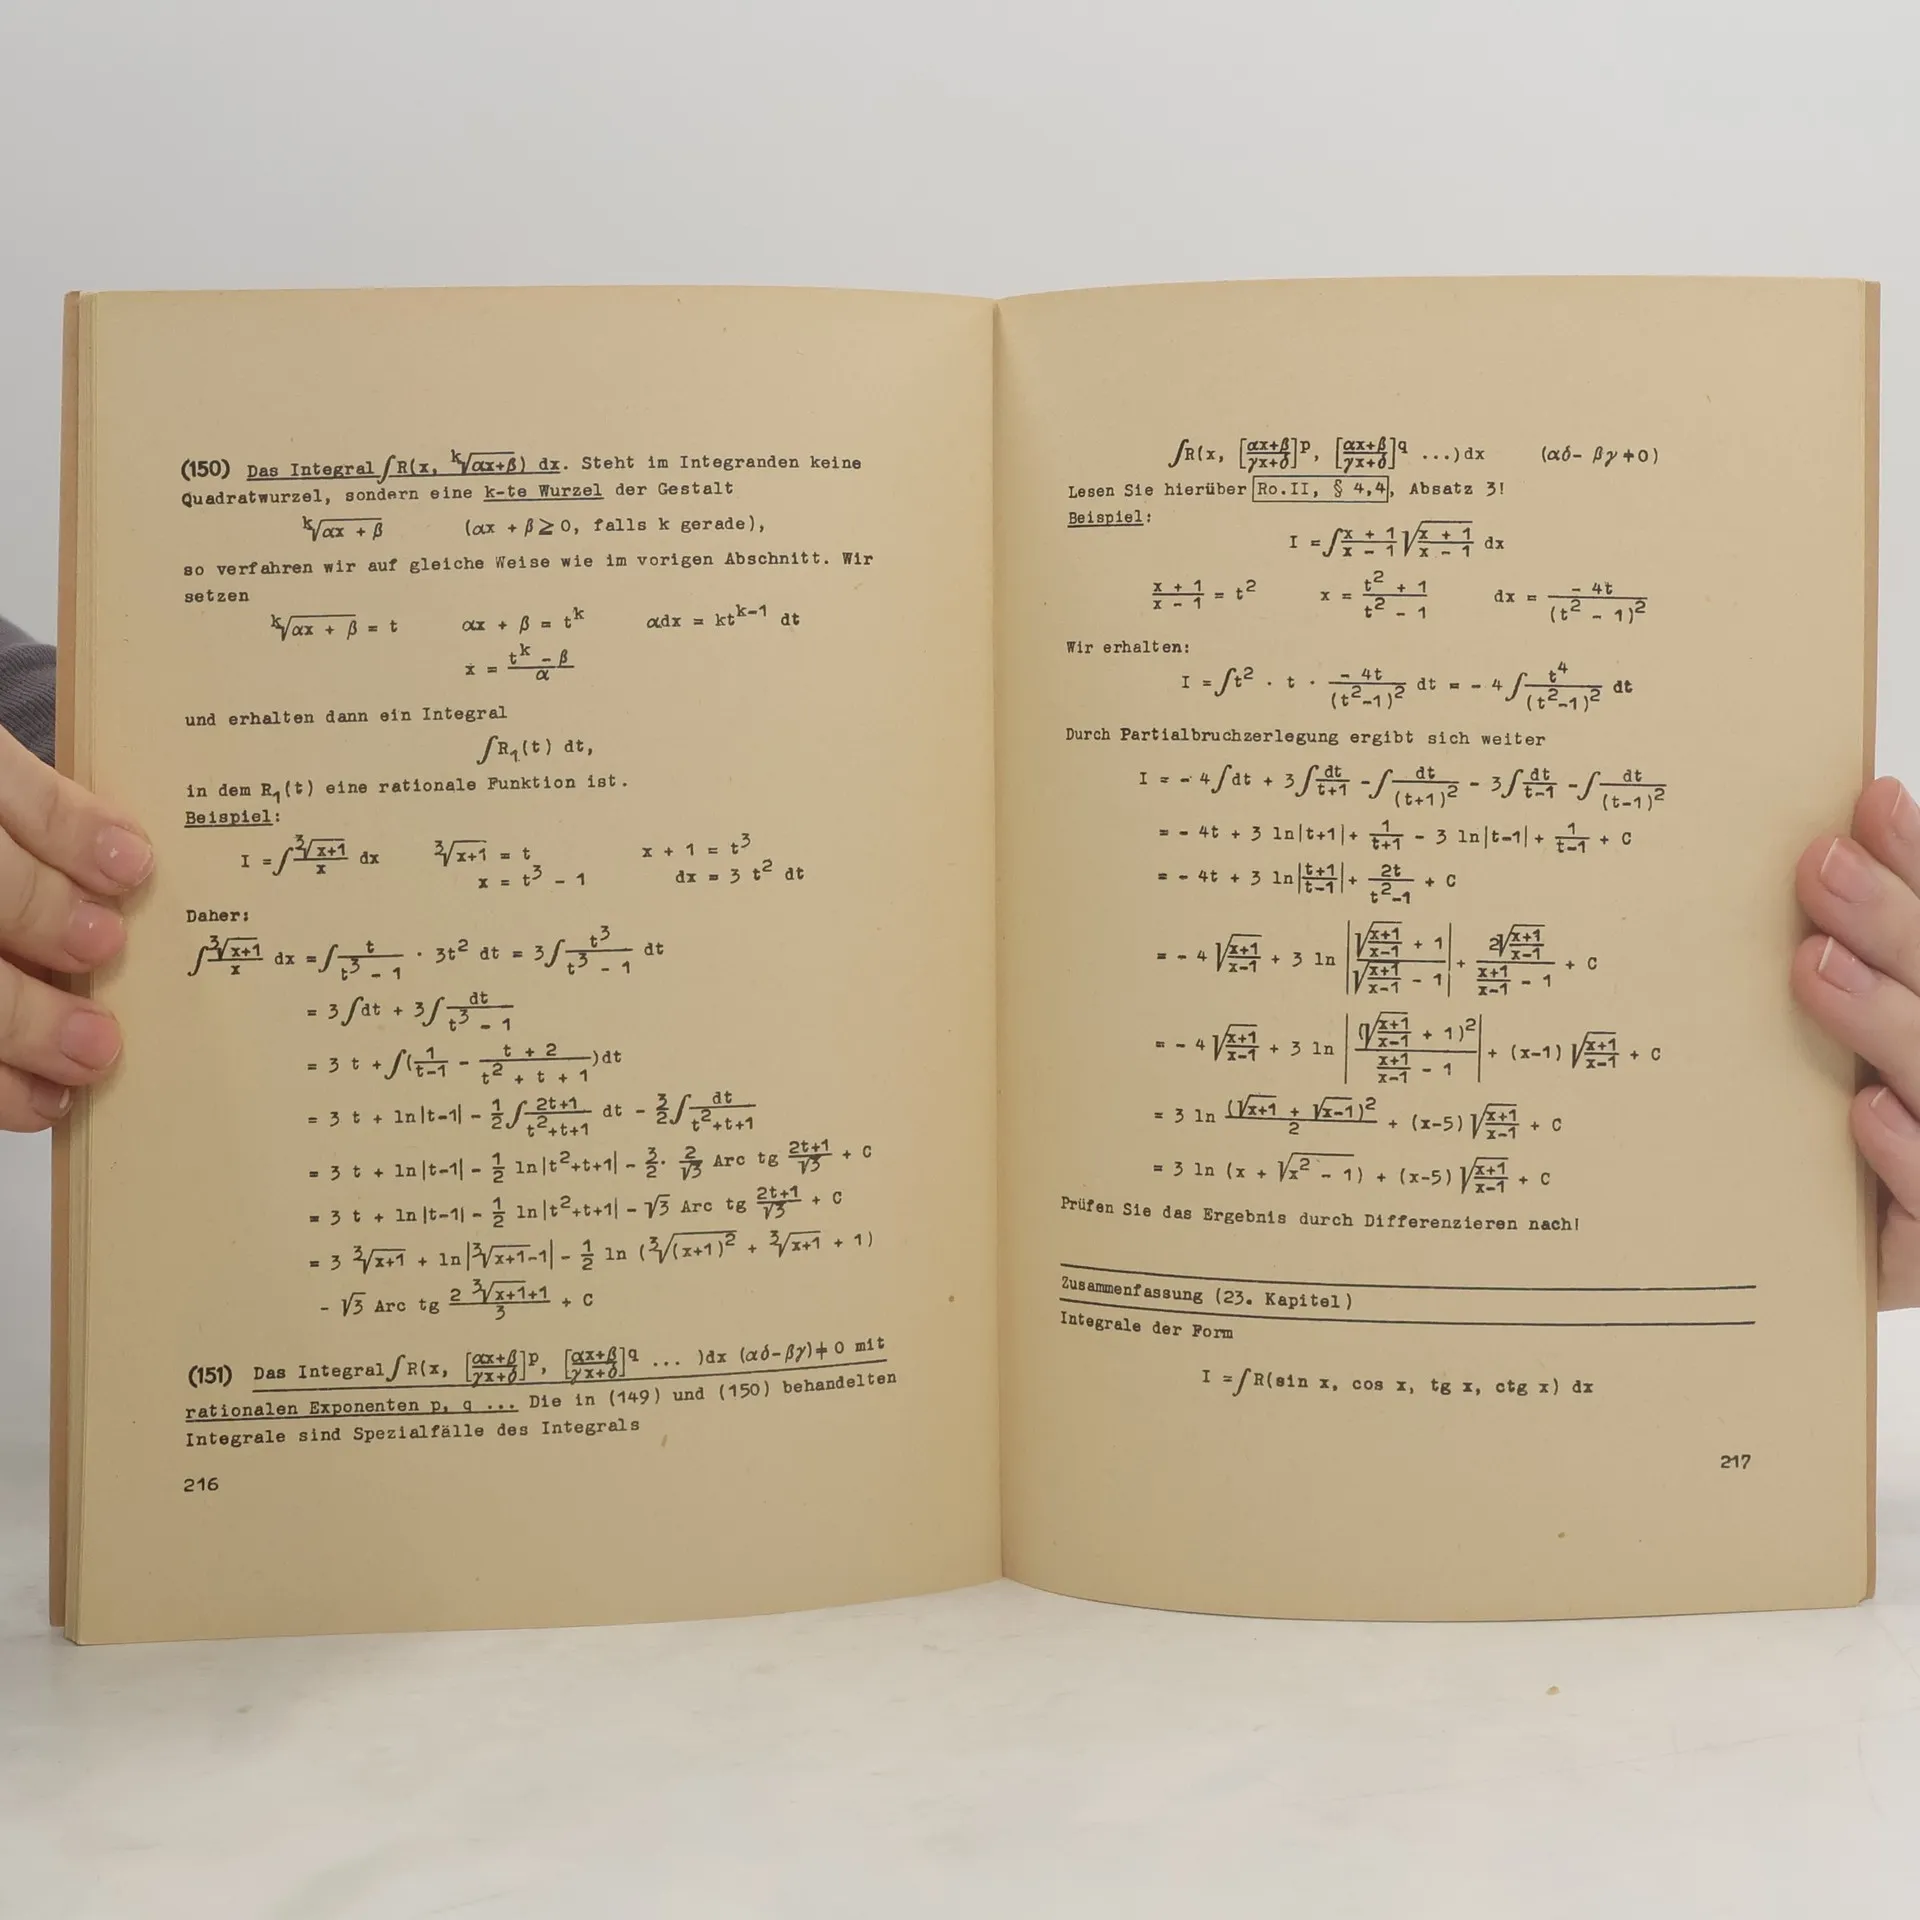 (150) Das Integral ∫R(x, ᵏ√(αx+β)) dx. Steht im Integranden keine
Quadratwurzel, sondern eine k-te Wurzel der Gestalt
ᵏ√(αx + β) (αx + β ≥ 0, falls k gerade),
so verfahren wir auf gleiche Weise wie im vorigen Abschnitt. Wir
setzen
ᵏ√(αx + β) = t αx + β = t^k αdx = kt^(k-1) dt
x = (t^k - β)/α
und erhalten dann ein Integral
∫R₁(t) dt,
in dem R₁(t) eine rationale Funktion ist.
Beispiel:
I = ∫ ∛(x+1)/x dx ∛(x+1) = t x + 1 = t³
x = t³ - 1 dx = 3 t² dt
Daher:
∫ ∛(x+1)/x dx = ∫ t/(t³ - 1) · 3t² dt = 3∫ t³/(t³ - 1) dt
= 3∫dt + 3∫ dt/(t³ - 1)
= 3 t + ∫(1/(t-1) - (t + 2)/(t² + t + 1))dt
= 3 t + ln|t-1| - 1/2 ∫ (2t+1)/(t²+t+1) dt - 3/2 ∫ dt/(t²+t+1)
= 3 t + ln|t-1| - 1/2 ln|t²+t+1| - 3/2 · 2/√3 Arc tg (2t+1)/√3 + C
= 3 t + ln|t-1| - 1/2 ln|t²+t+1| - √3 Arc tg (2t+1)/√3 + C
= 3 ∛(x+1) + ln|∛(x+1)-1| - 1/2 ln (∛((x+1)²) + ∛(x+1) + 1)
- √3 Arc tg (2 ∛(x+1)+1)/3 + C
(151) Das Integral ∫R(x, [(αx+β)/(γx+δ)]^p, [(αx+β)/(γx+δ)]^q ... )dx (αδ-βγ)≠0 mit
rationalen Exponenten p, q ... Die in (149) und (150) behandelten
Integrale sind Spezialfälle des Integrals
216
∫R(x, [(αx+β)/(γx+δ)]^p, [(αx+β)/(γx+δ)]^q ...)dx (αδ- βγ ≠ 0)
Lesen Sie hierüber Ro.II, § 4,4, Absatz 3!
Beispiel:
I = ∫ (x + 1)/(x - 1) √((x + 1)/(x - 1)) dx
(x + 1)/(x - 1) = t² x = (t² + 1)/(t² - 1) dx = (- 4t)/(t² - 1)²
Wir erhalten:
I = ∫t² · t · (- 4t)/(t²-1)² dt = - 4 ∫ t⁴/(t²-1)² dt
Durch Partialbruchzerlegung ergibt sich weiter
I = - 4∫dt + 3∫ dt/(t+1) - ∫ dt/(t+1)² - 3∫ dt/(t-1) - ∫ dt/(t-1)²
= - 4t + 3 ln|t+1| + 1/(t+1) - 3 ln|t-1| + 1/(t-1) + C
= - 4t + 3 ln|(t+1)/(t-1)| + 2t/(t²-1) + C
= - 4 √((x+1)/(x-1)) + 3 ln |(√((x+1)/(x-1)) + 1)/(√((x+1)/(x-1)) - 1)| + 2√((x+1)/(x-1))/((x+1)/(x-1) - 1) + C
= - 4 √((x+1)/(x-1)) + 3 ln |(√((x+1)/(x-1)) + 1)²/((x+1)/(x-1) - 1)| + (x-1) √((x+1)/(x-1)) + C
= 3 ln (√(x+1) + √(x-1))²/2 + (x-5) √((x+1)/(x-1)) + C
= 3 ln (x + √(x² - 1)) + (x-5) √((x+1)/(x-1)) + C
Prüfen Sie das Ergebnis durch Differenzieren nach!
Zusammenfassung (23. Kapitel)
Integrale der Form
I = ∫R(sin x, cos x, tg x, ctg x) dx
217